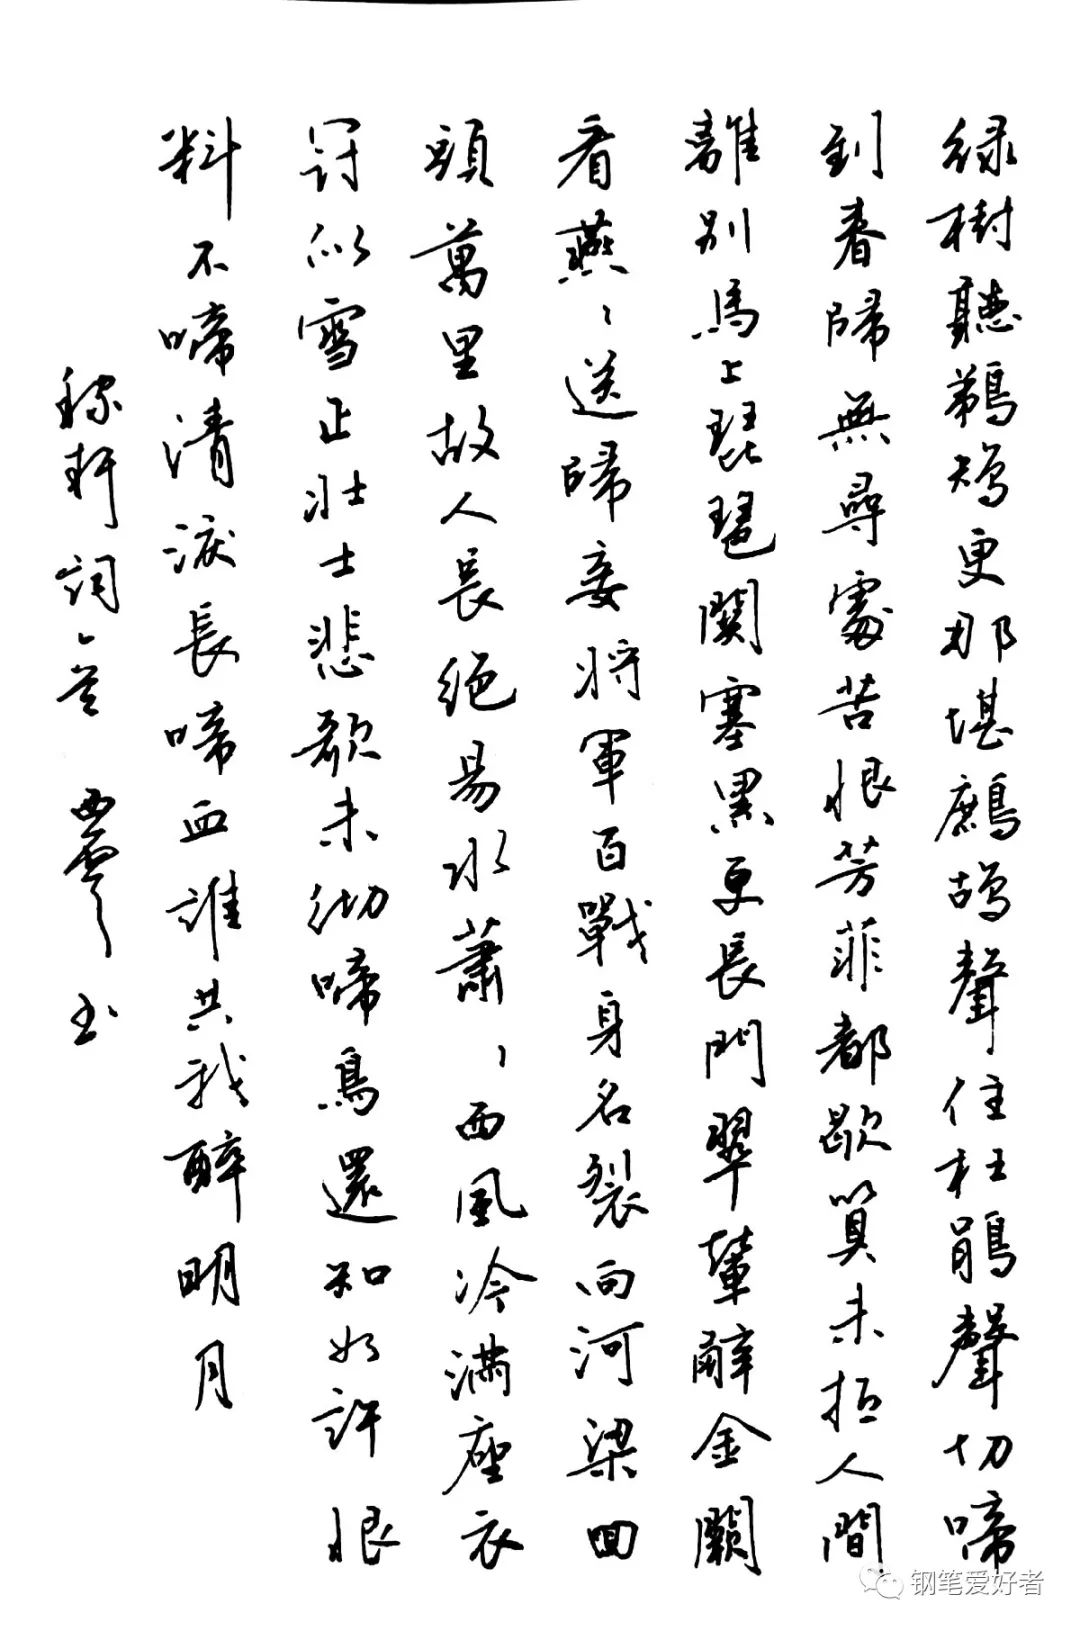 綠樹聽鵜鴂更那堪鷓鴣聲住杜鵑聲切啼
到春歸無尋處苦恨芳菲都歇算未抵人間
離別馬上琵琶關塞黑更長門翠輦辭金闕
看燕〻送歸妾將軍百戰身名裂向河梁回
頭萬里故人長絕易水蕭〻西風冷滿座衣
冠似雪正壯士悲歌未徹啼鳥還知如許恨
料不啼清淚長啼血誰共我醉明月
稼軒詞一首 書
钢笔爱好者